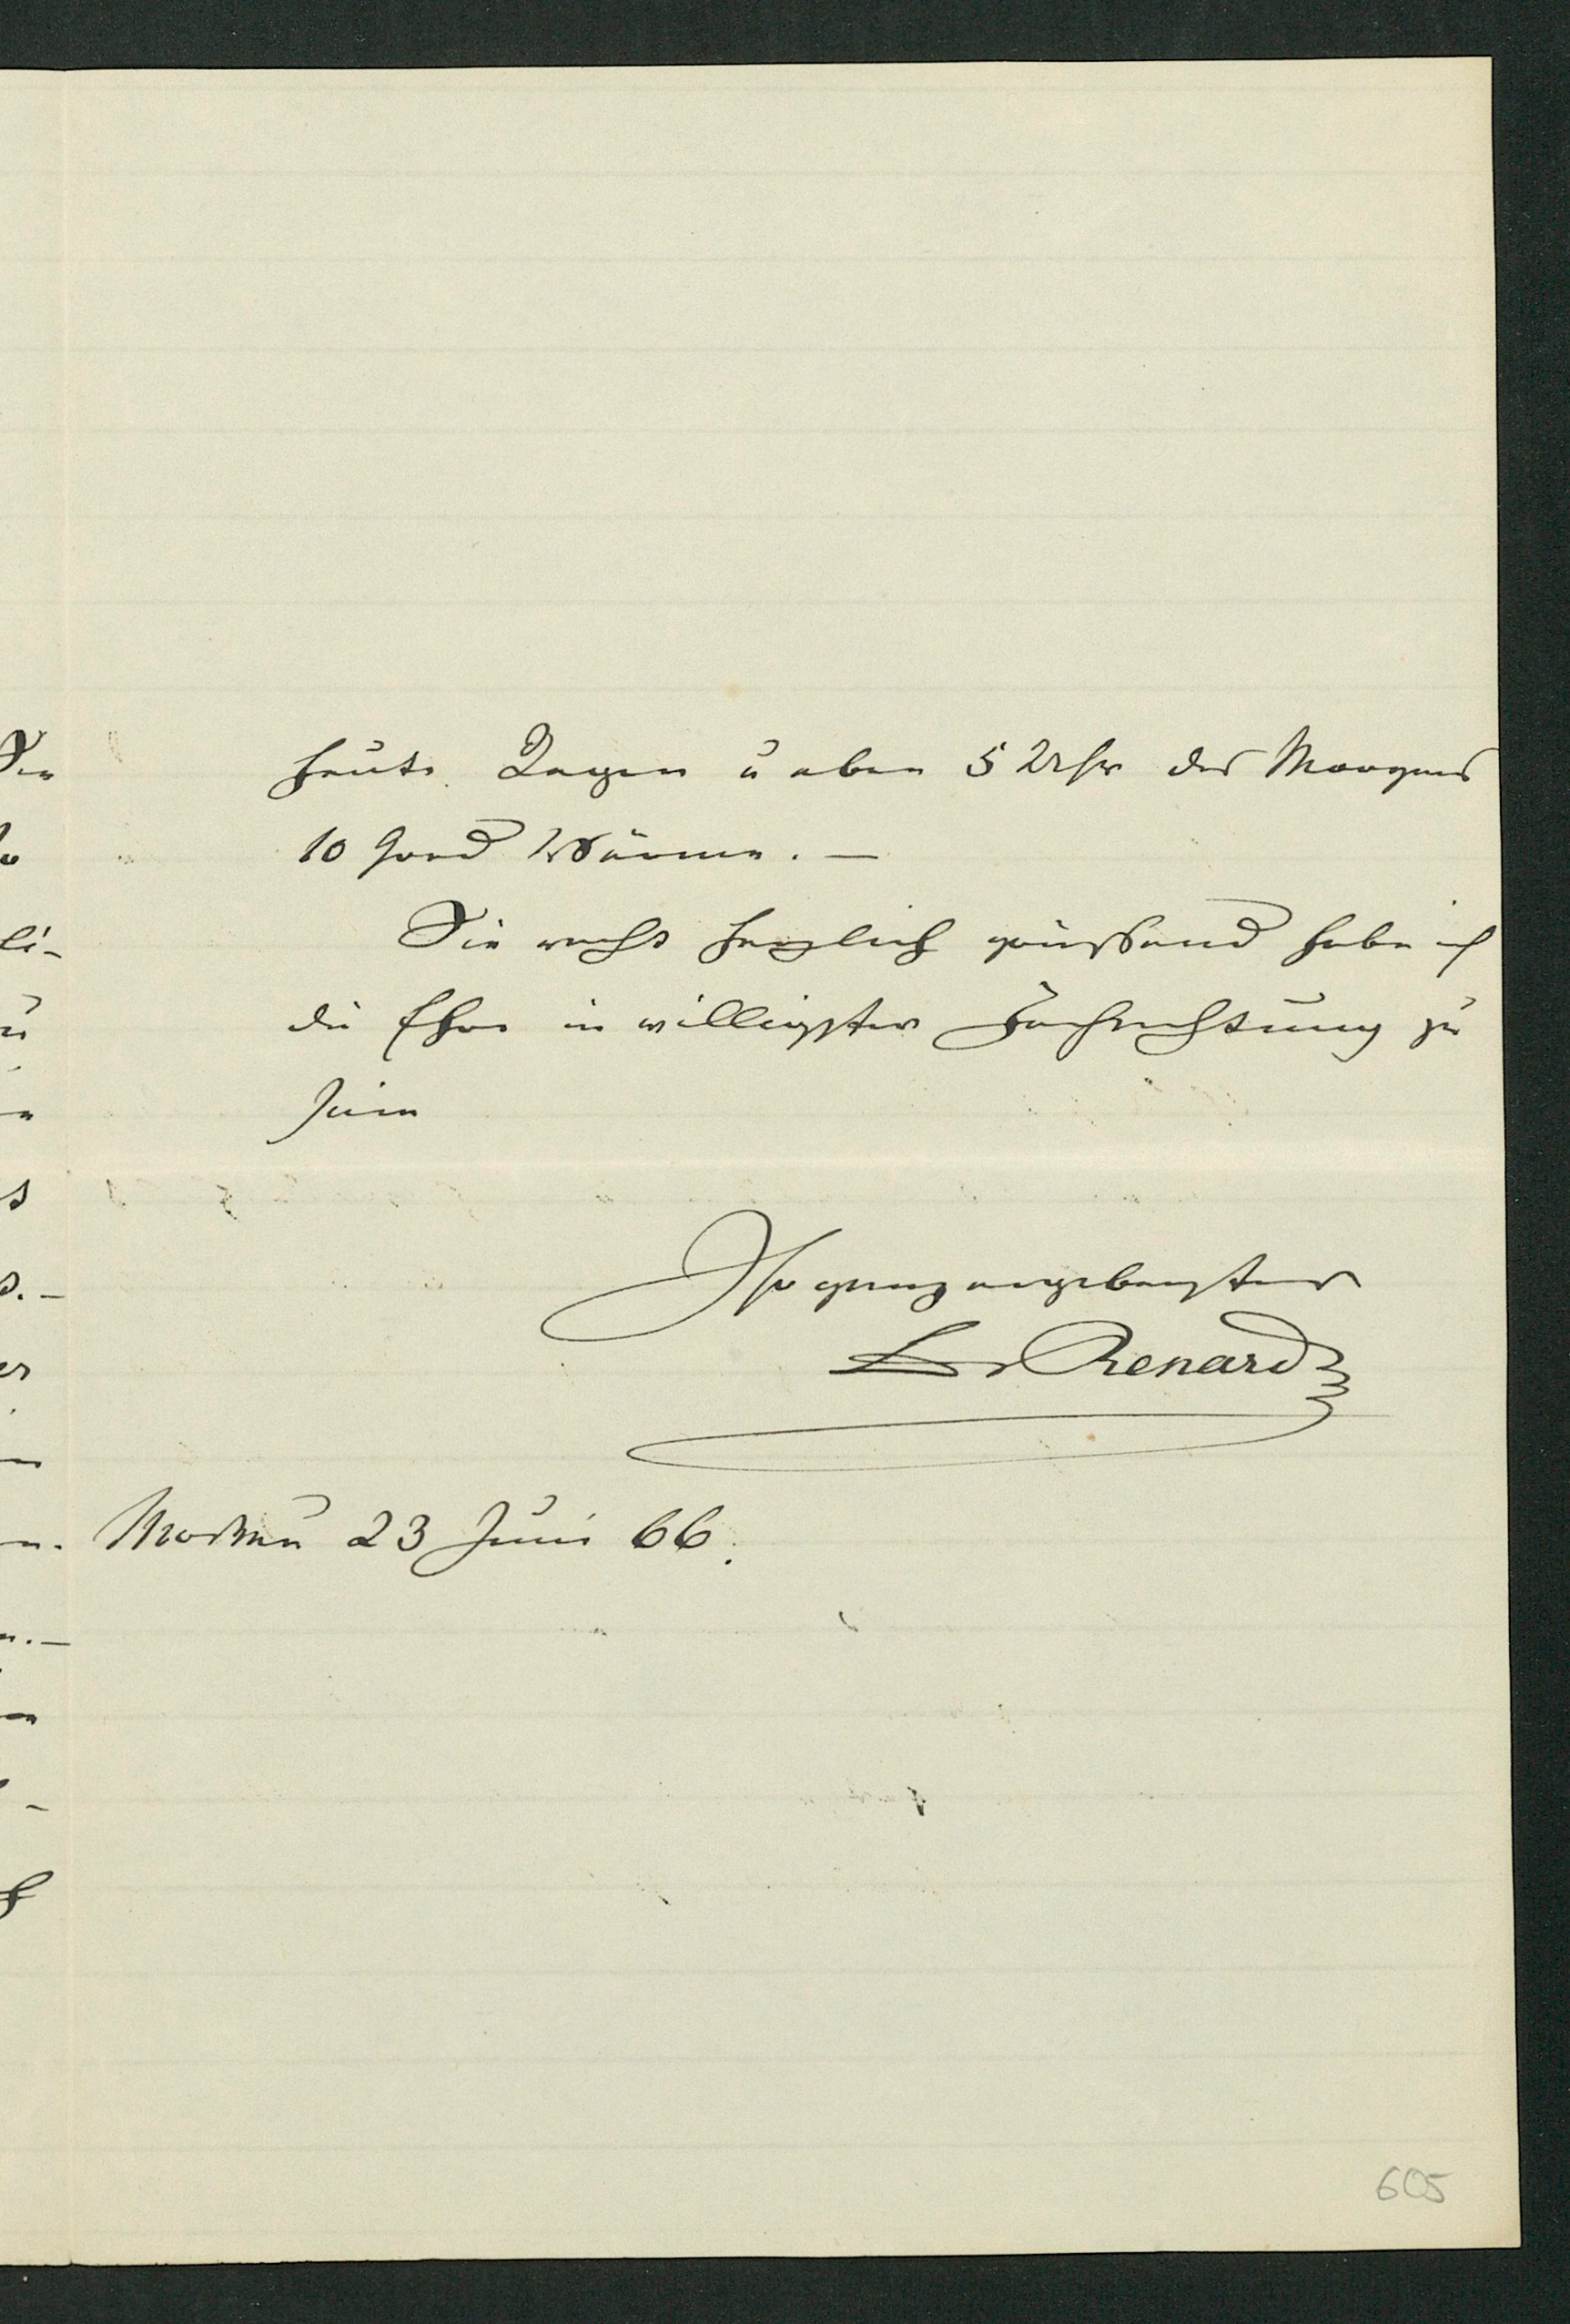 heute. Regen u eben 5 Uhr des Morgens
10 Grad Wärme. —
Sie recht herzlich grüßend habe ich
die Ehre in williegster Hochachtung zu
sein
Ihr ganz ergebenster
Dr Renard
Moskau 23 Juni 66.
605